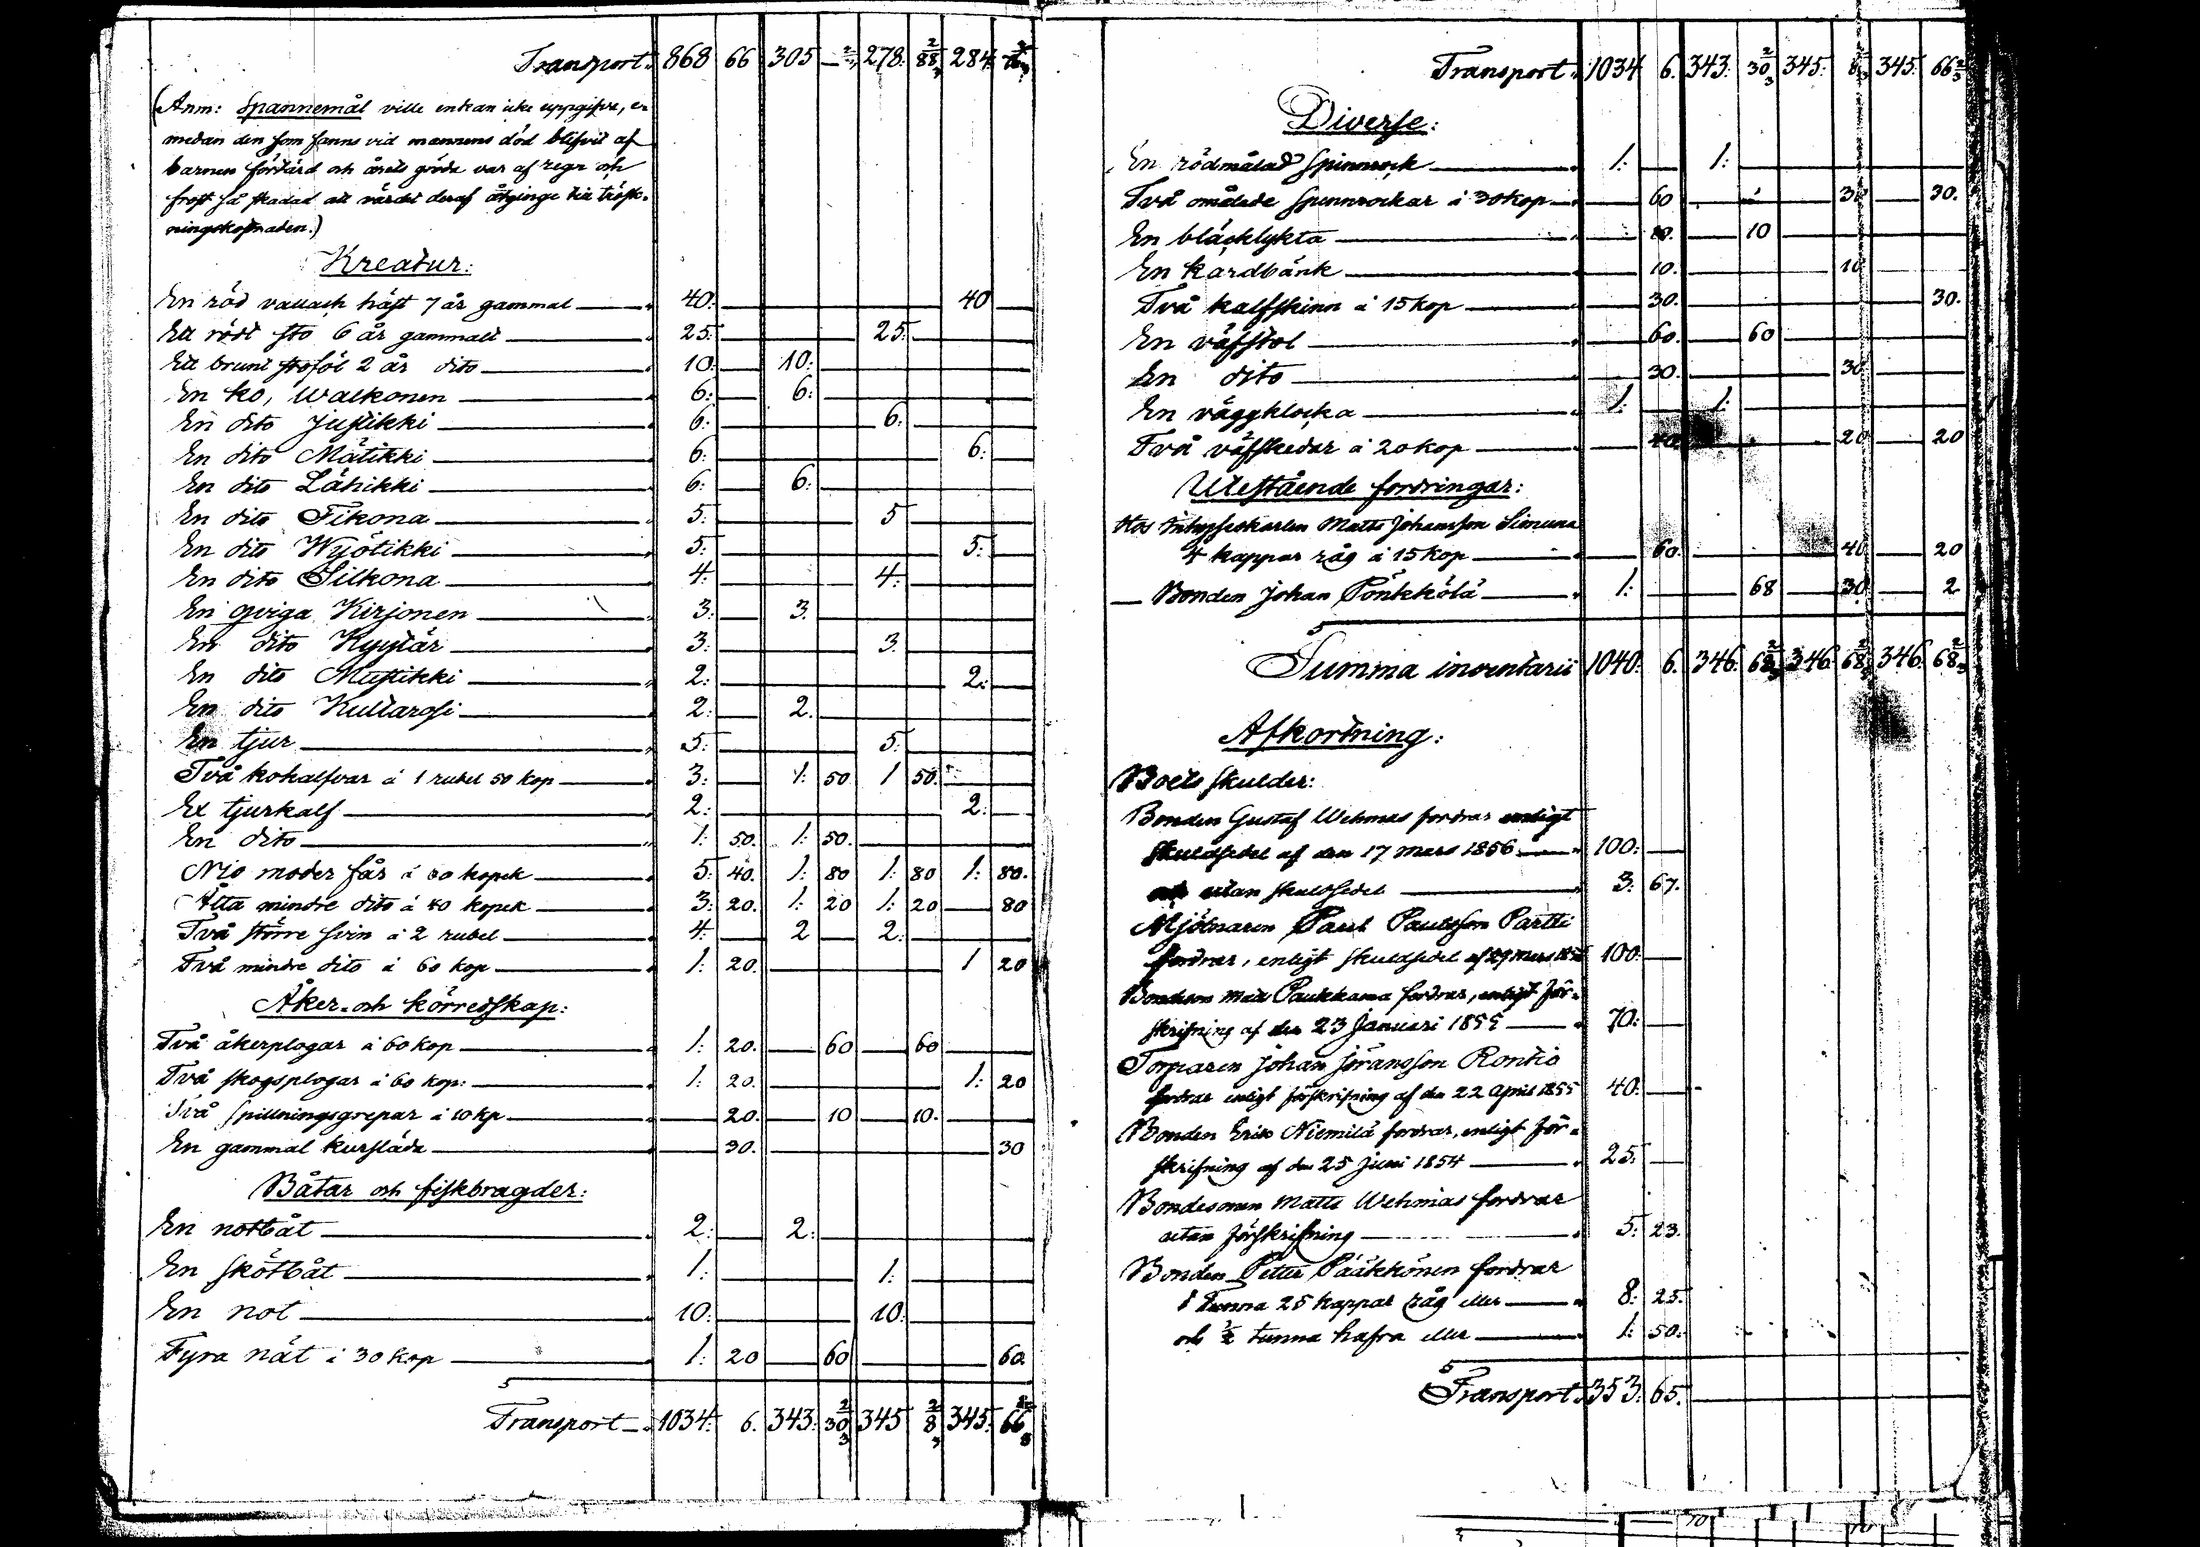 Transport 868 66 305 — 2/3 278 88 2/3 284
(Anm: Spannemål ville enkan icke uppgifva, e-
medan den som fanns vid mannens död blifvit af
barnen förtärd och årets gröda var af regn och
frost så skadad att värdet deraf åtginge till trösk-
ningskostnaden.)
Kreatur:
En röd vallach häst 7 år gammal 40: 40
Ett rödt sto 6 år gammalt 25: 25:
Ett brunt stoföl 2 år dito 10: 10:
En ko, Walkonen 6: 6:
En dito Justikki 6: 6:
En dito Mätikki 6: 6:
En dito Lähikki 6: 6:
En dito Tikona 5: 5
En dito Wyötikki 5: 5:
En dito Silkona 4: 4:
En qviga Kirjonen 3: 3.
En dito Kyytär 3: 3.
En dito Mustikki 2: 2:
En dito Kultarosi 2: 2.
En tjur 5: 5:
Två kokalfvar á 1 rubel 50 kop 3: 1: 50 1 50.
En tjurkalf 2: 2:
En dito 1: 50. 1: 50.
Nio moder får á 60 kopek 5: 40. 1: 80 1: 80 1: 80.
Åtta mindre dito á 40 kopek 3: 20. 1: 20 1: 20 80
Två större svin á 2 rubel 4: 2 2:
Två mindre dito á 60 kop 1: 20. 1 20
Åker- och körredskap:
Två åkerplogar á 60 kop 1: 20. 60 60
Två skogsplogar á 60 kop: 1: 20. 1: 20
Två spillningsgrepar á 10 kp 20. 10 10.
En gammal kursläda 30. 30
Båtar och fiskbragder:
En notbåt 2: 2:
En skötbåt 1: 1:
En not 10: 10:
Fyra nät á 30 kop 1: 20 60 60
Transport 1034: 6. 343: 30 2/3 345 8 2/3 345: 66 2/3
Transport 1034 6. 343: 30 2/3 345: 8 2/3 345: 66 2/3
Diverse:
En rödmålad spinnrock 1: 1:
Två omålade spinnrockar á 30 kop 60 30 30.
En bläcklykta 10. 10
En kardbänk 10. 10
Två kalfskinn á 15 kop 30. 30.
En väfstol 60. 60
En dito 30. 30
En väggklocka 1: 1:
Två väfskedar á 20 kop 40 20 20
Utestående fordringar:
Hos Inhysekarlen Matts Johansson Simuna
4 kappar råg á 15 kop 60. 40 20
— Bonden Johan Pönkkölä 1: 68 30 2
Summa inventarii 1040: 6. 346: 68 2/3 346: 68 2/3 346. 68 2/3
Afkortning:
Boets skulder:
Bonden Gustaf Wehmas fordrar enligt
skuldsedel af den 17 mars 1856 100:
och utan skuldsedel 3: 67.
Mjölnaren Paul Paulsson Partti
fordrar, enligt skuldsedel af 29 mars 100:
Bondson Matts Paukkama fordrar, enligt för-
skrifning af den 23 Januari 1855 70:
Torparen Johan Jöransson Rontio
fordrar enligt förskrifning af den 22 April 1855 40:
Bonden Eric Niemilä fordrar, enligt för-
skrifning af den 25 Juni 1854 25:
Bondesonen Matts Wehmas fordrar
utan förskrifning 5: 23.
Bonden Petter Pääkkönen fordrar
1 Tunna 25 kappar råg eller 8: 25.
och ½ tunna hafra eller 1: 50.
Transport 353: 65.